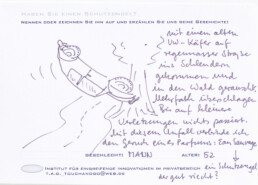 HABEN SIE EINEN SCHUTZENGEL?
NENNEN ODER ZEICHNEN SIE IHN AUF UND ERZÄHLEN SIE UNS SEINE GESCHICHTE!
mit einen alten
VW-Käfer auf
regennasser Straße
ins Schleudern
gekommen und
in den Wald gerauscht.
Mehrfach überschlagen
bis auf kleinen
Verletzungen nichts passiert.
Mit diesem Unfall verbinde ich
den Geruch eines Parfums: Eau Sauvage
GESCHLECHT: MANN ALTER: 52
ein Schutzengel
der gut riecht?
INSTITUT FÜR EINGREIFENDE INNOVATIONEN IM PRIVATBEREICH